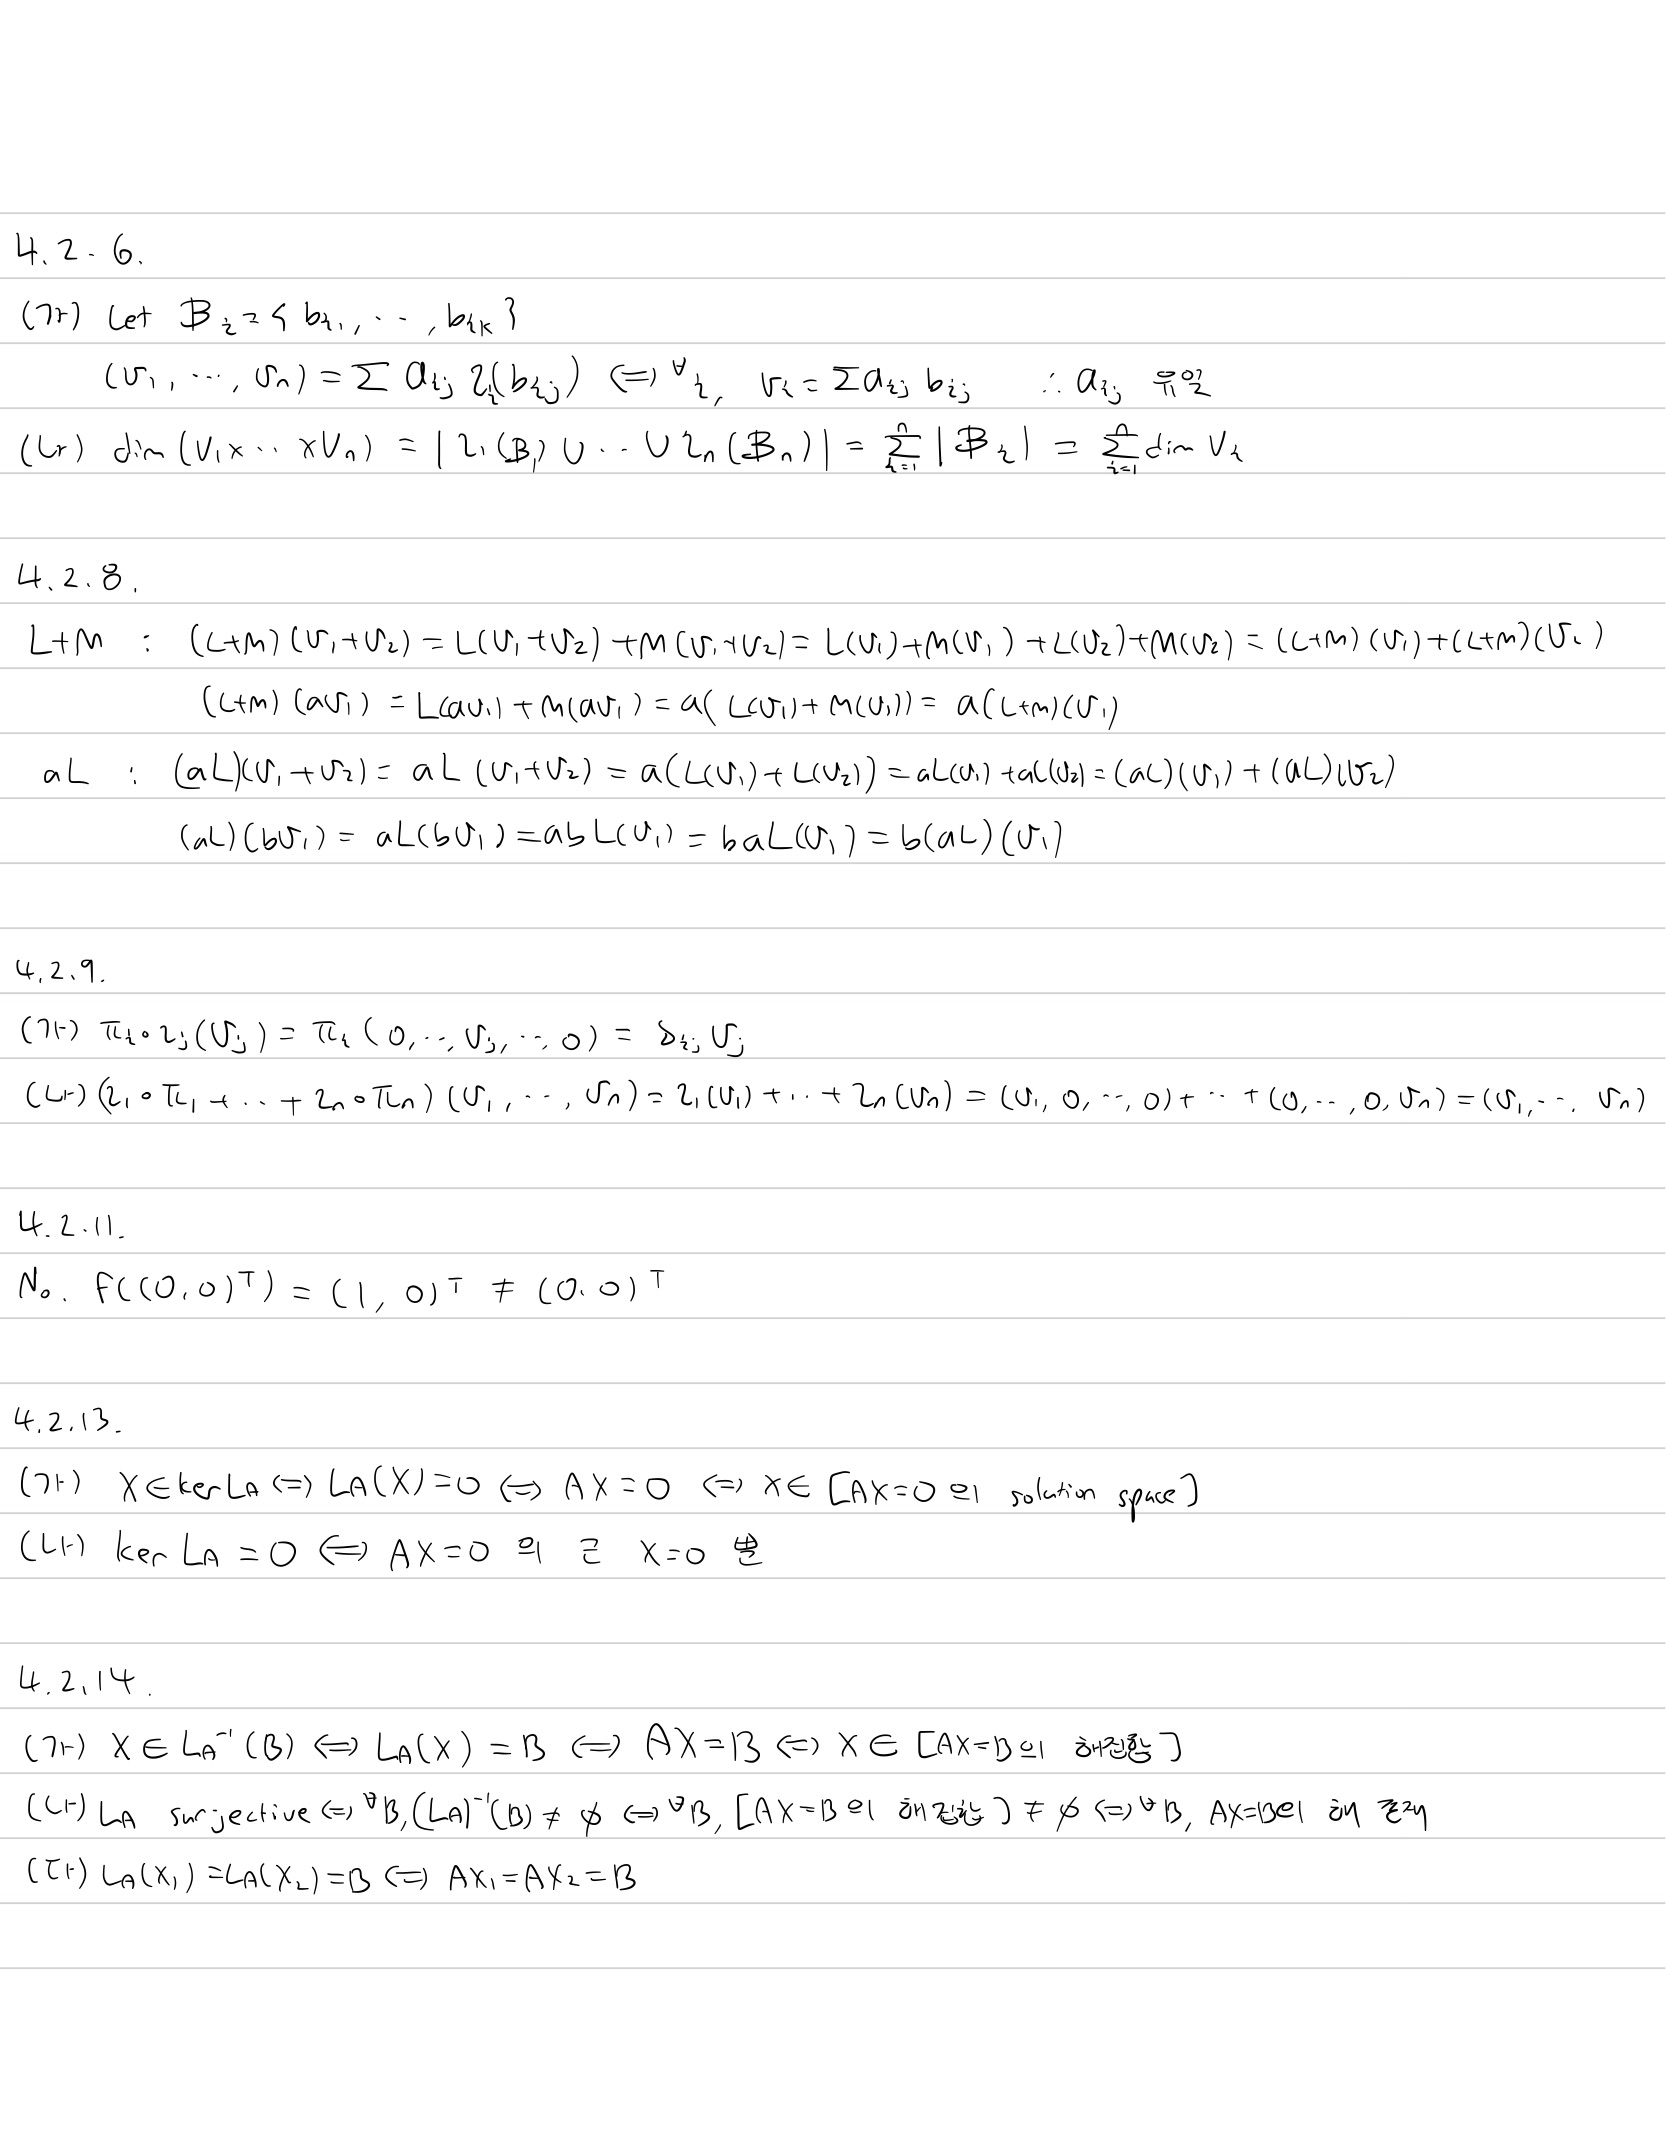 4.2.6.
(가) Let 𝔹ᵢ = { bᵢ₁, ⋯, bᵢₖ }
(v₁, ⋯, vₙ) = Σ aᵢⱼ ιᵢ(bᵢⱼ) ⇔ ∀i, vᵢ = Σ aᵢⱼ bᵢⱼ ∴ aᵢⱼ 유일
(나) dim (V₁×⋯×Vₙ) = | ι₁(𝔹₁) ∪ ⋯ ∪ ιₙ(𝔹ₙ) | = Σⁿᵢ₌₁ |𝔹ᵢ| = Σⁿᵢ₌₁ dim Vᵢ
4.2.8.
L+M : (L+M)(v₁+v₂) = L(v₁+v₂) + M(v₁+v₂) = L(v₁)+M(v₁)+L(v₂)+M(v₂) = (L+M)(v₁)+(L+M)(v₂)
(L+M)(av₁) = L(av₁)+M(av₁) = a( L(v₁)+M(v₁)) = a(L+M)(v₁)
aL : (aL)(v₁+v₂) = aL(v₁+v₂) = a(L(v₁)+L(v₂)) = aL(v₁)+aL(v₂) = (aL)(v₁)+(aL)(v₂)
(aL)(bv₁) = aL(bv₁) = abL(v₁) = baL(v₁) = b(aL)(v₁)
4.2.9.
(가) πᵢ∘ιⱼ(vⱼ) = πᵢ(0, ⋯, vⱼ, ⋯, 0) = δᵢⱼ vⱼ
(나) (ι₁∘π₁ + ⋯ + ιₙ∘πₙ)(v₁, ⋯, vₙ) = ι₁(v₁) + ⋯ + ιₙ(vₙ) = (v₁, 0, ⋯, 0) + ⋯ + (0, ⋯, 0, vₙ) = (v₁, ⋯, vₙ)
4.2.11.
No. F((0,0)ᵀ) = (1, 0)ᵀ ≠ (0,0)ᵀ
4.2.13.
(가) X∈ker L_A ⇔ L_A(X)=0 ⇔ AX=0 ⇔ X∈ [AX=0의 solution space]
(나) ker L_A = 0 ⇔ AX=0 의 근 X=0 뿐
4.2.14.
(가) X∈ L_A⁻¹(B) ⇔ L_A(X) = B ⇔ AX=B ⇔ X∈ [AX=B의 해집합]
(나) L_A surjective ⇔ ∀B, (L_A)⁻¹(B) ≠ ∅ ⇔ ∀B, [AX=B의 해집합] ≠ ∅ ⇔ ∀B, AX=B의 해 존재
(다) L_A(X₁) = L_A(X₂) = B ⇔ AX₁=AX₂=B